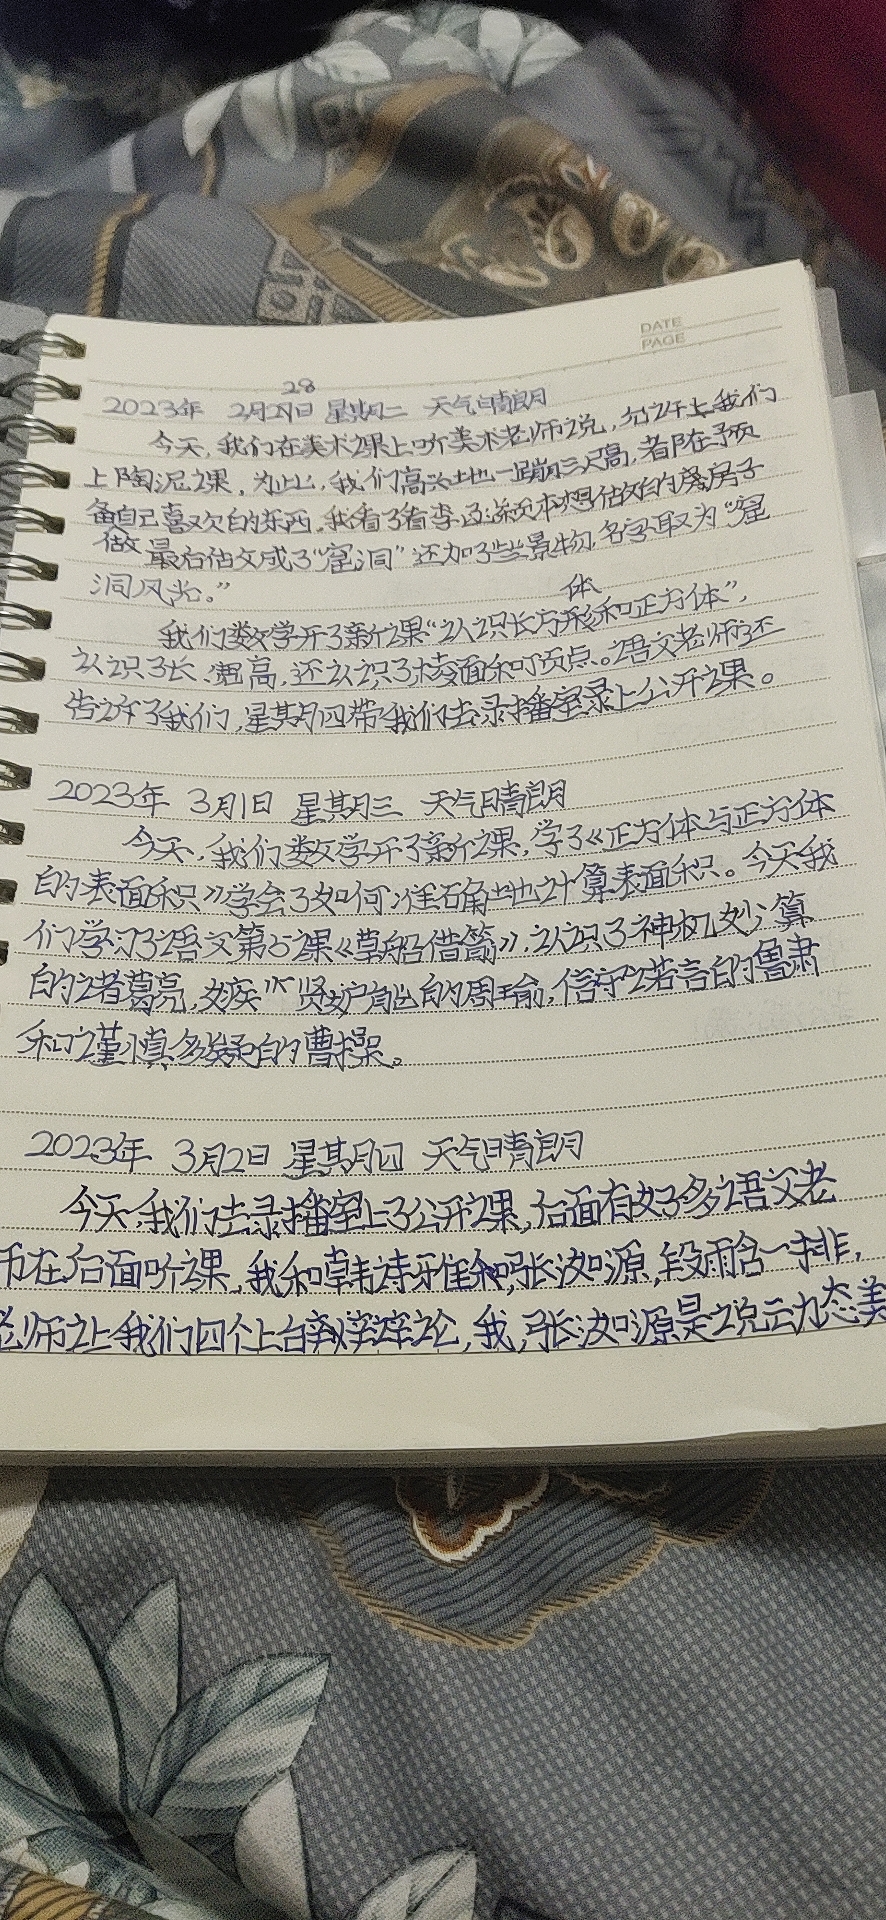 DATE
PAGE
28
2023年 2月27日 星期二 天气晴朗
今天,我们在美术课上听美术老师说,允许上我们
上陶泥课,为此,我们高兴地一蹦三尺高,都在预
备自己喜欢的东西,我看了看李 原本想做的房子
做 最后做成了“窑洞”还加了些景物,名字取为“窑
洞风光。”
体
我们数学开了新课“认识长方形和正方体”,
认识了长、宽高,还认识了棱面和顶点。语文老师还
告诉了我们,星期四带我们去录播室录上公开课。
2023年 3月1日 星期三 天气晴朗
今天,我们数学开了新课,学了《正方体与正方体
的表面积》学会了如何准确地计算表面积。今天我
们学习了语文第5课《草船借箭》,认识了神机妙算
的诸葛亮,嫉 贤妒能的周瑜,信守诺言的鲁肃
和谨慎多疑的曹操。
2023年 3月2日 星期四 天气晴朗
今天,我们去录播室上了公开课,后面有好多语文老
师在后面听课,我和韩诗雅和张汝源,段雨含一排,
老师让我们四个上台辩论,我,张汝源是说动态美